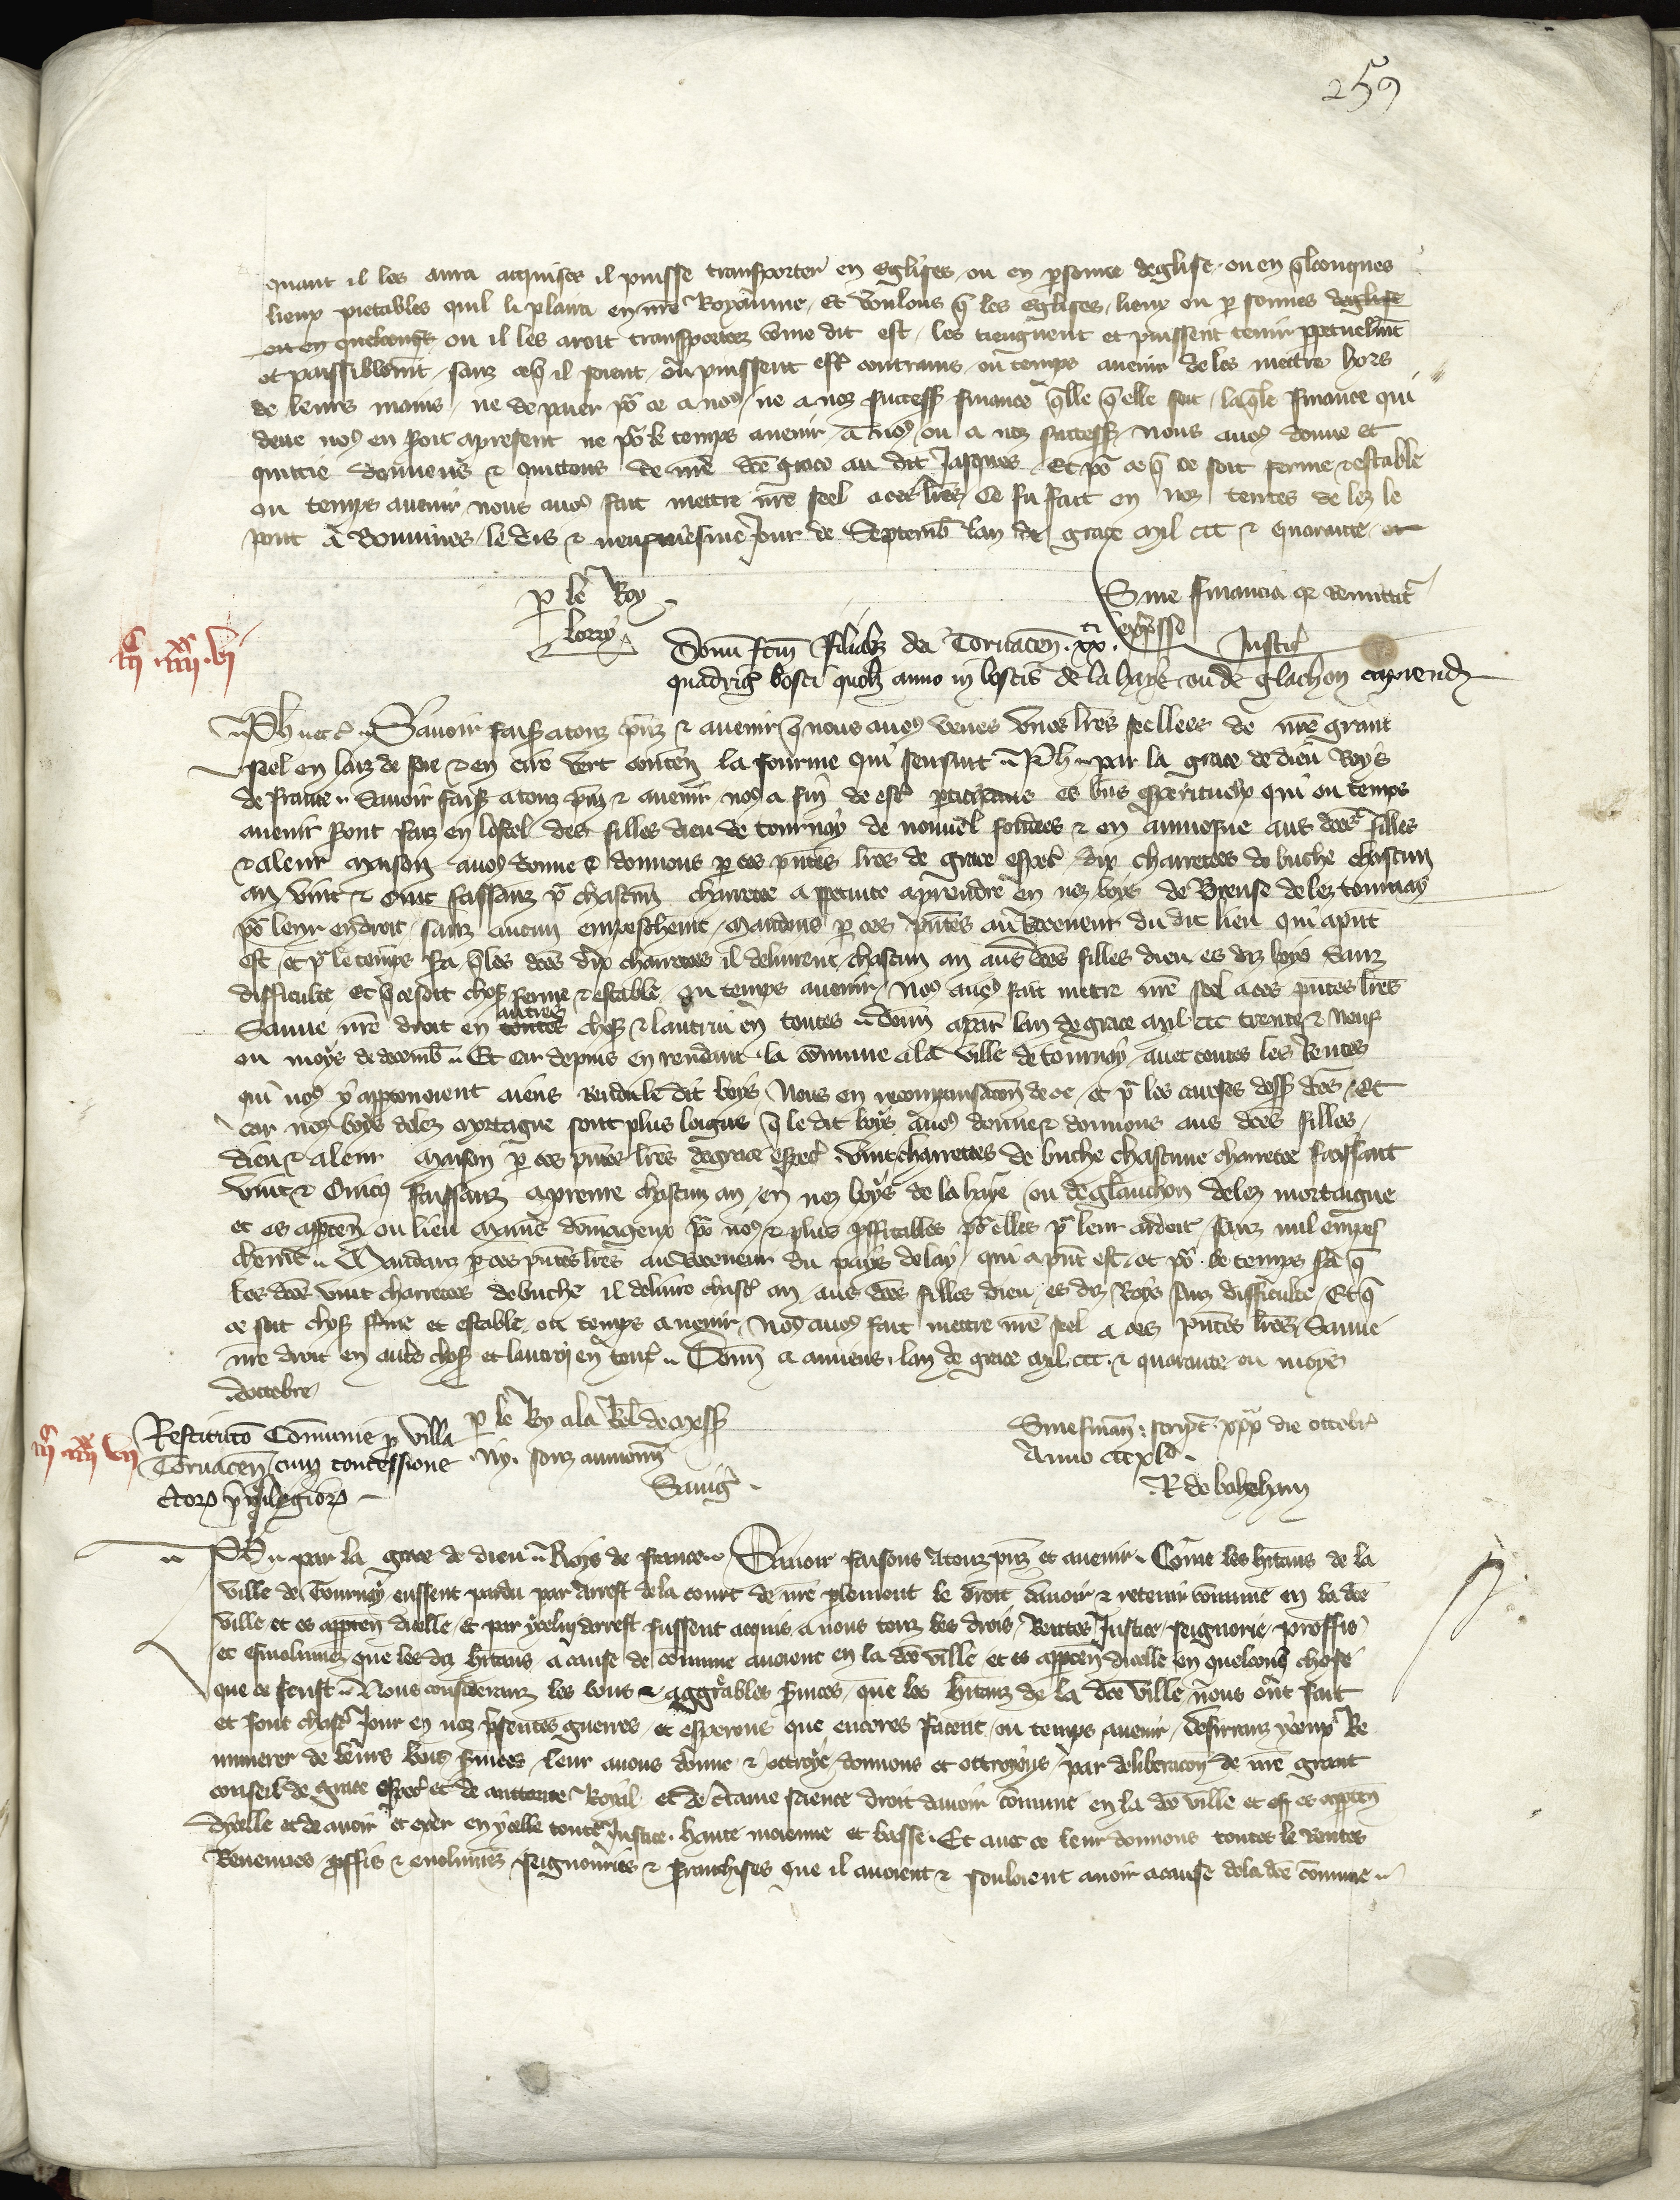 259
quant il les aura acquises il puisse transporter en eglises ou en personnes deglise ou en qlconques
lieux pietables quil li plaira en nre Royaume Et voulons q les eglises lieux ou personnes deglise
ou en quelconqs ou il les aroit transportez come dit est les tiengnent et puissent tenir ppetuelmt
et paisiblemt sanz ce q il soient ou puissent estre contrains ou temps avenir de les mettre hors
de leurs mains ne de paier por ce a nos ne a noz success finance qlle q elle soit laqle finance qui
deue nos en soit apresent ne por le temps avenir a nos ou a noz success nous avos donne et
quittie donnons & quittons de nre dce grace au dit Jaques Et por ce q ce soit ferme & estable
ou temps avenir nous avos fait mettre nre seel a ces lres Ce fu fait en noz tentes de lez le
pont a Bouvines le dis & neufviesme Jour de Septemb lan de grace mil ccc & quarante
p le Roy
Lorriz
Sine financia q remittit
expresse
Justic
iiic iiiixx vi
Donu fcm filiabz dei Tornacen xxti
quadrig bosci quolz anno in boscis de la haye ou de glachon capiend
Ph etc Savoir faisos a touz pnz & avenir q nous avos veues unes lres seellees de nre grant
seel en laz de soie & en cire vert conten la fourme qui sensuit Ph par la grace de dieu Roys
de France Savoir faisos a touz pnz & avenir nos a fin de estre es bns esperituelx qui ou temps
avenir seront faiz en lostel des filles dieu de tournay de nouvel fondees & en aumosne aus dces filles
& a leur maison avos donne & donnons p ces pntes lres de grace espec dix charretees de buche chascun
an vint & cinc faissanz pr chascun charretee a ppetuite aprendre en noz boys de Breuse de lez tournay
por leur endroit sanz aucun empeschemt Mandons p ces pntes au Receveur du dit lieu qui a pnt
est et pr le temps sa q les dces dix charretees il delivrent chascun an aus dces filles dieu es diz boys sanz
difficulte et q ce soit chose ferme & estable ou temps avenir Nos avos fait mettre nre seel a ces pntes lres
Sauve nre droit en toutes autres choses & lautrui en toutes Donn a par lan de grace mil ccc trente & neuf
ou moys de decemb Et car depuis en rendant la comune a la ville de tournay avec toutes les Rentes
qui nos y apptenoient aiens rendu le dit boys Nous en recompensacon de ce et pr les causes dess dces Et
car noz boys delez mortagne sont plus loigns q le dit boys avos donne & donnons aus dces filles
dieu & a leur maison p ces pntes lres de grace espec vint charretees de buche chascune charretee faissant
vint & cincq faissanz aprenre chascun an en noz boys de la haye ou de glauchon delez mortaigne
et es apptens ou lieu mains domageux por nos & plus pffitables por elles pr leur ardoir sanz nul empes
chemt Mandanz p ces pntes lres au Receveur du pays de lay qui a pnt est et por le temps sa q
les dces vint charretees de buche il delivre chasc an aus dces filles dieu es diz boys sanz difficulte Et q
ce soit chose ferme et estable ou temps avenir Nos avos fait mettre nre seel a ces pntes lres Sauve
nre droit en autrs choses et lautrui en toutes Donn a amiens lan de grace mil ccc & quarante ou moys
doctobre
p le Roy a la Rel de mess
Ny sonz aumosn
Savig
Sine finan script xxx die octobr
Anno cccxlo
R de balehain
iiic iiiixx vii
Restitucio Comunie p villa
Tornacen cum concessione
ctor privilegior
Ph par la grace de dieu Roys de France Savoir faisons a touz pnz et avenir Come les hitans de la
ville de Tournay eussent perdu par arrest de la court de nre plement le droit davoir & retenir comune en la dce
ville et es apptens dicelle & par ycelui arrest fussent acquis a nous touz les drois Rentes Justice seignorie proffis
et esmolumens que les diz hitans a cause de comune avoient en la dce ville et es apptens dicelle en quelconq chose
que ce feust Nous considerans les bons & aggreables services que les hitanz de la dce ville nous ont fait
et font chasc Jour en noz presentes guerres et esperons que encores facent ou temps avenir desirranz yceux Re
munerer de leurs bons services leur avons donne & ottroye donnons et ottroyons par deliberacon de nre grant
conseil de grace espec et de auctorite Royal et de certaine science droit davoir comune en la dce ville et es apptens
dycelle et de avoir et exer en ycelle toute Justice haute moienne et basse Et avec ce leur donnons toutes le Rentes
Revenues pffis & emolumens seignouries & franchises que il avoient & souloient avoir a cause de la dce comune